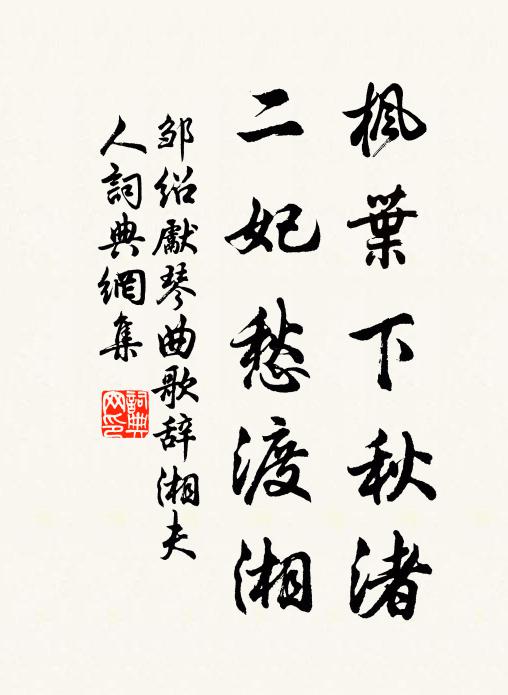 枫葉下秋渚
二妃愁渡湘
邹绍獻琴曲歌辞湘夫
人詞典網集
詞典
网印